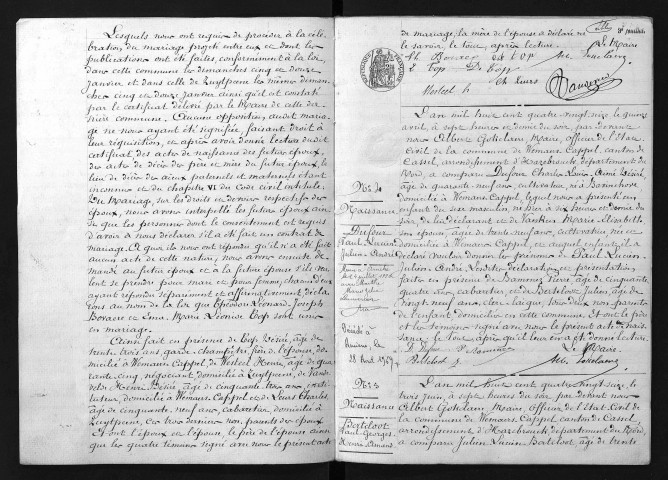 Lesquels nous ont requis de procéder à la célé-
bration du mariage projeté entre eux et dont les
publications ont été faites, conformément à la loi,
dans cette commune les dimanches cinq et douze
janvier et dans celle de Zuytpeene les mêmes diman-
ches cinq et douze janvier ainsi qu'il est constaté
par le certificat délivré par le Maire de cette der-
nière commune. Aucune opposition audit maria-
ge ne nous ayant été signifiée, faisant droit à
leur réquisition, et après avoir donné lecture du dit
certificat, des actes de naissance des futurs époux,
des actes de décès de père et mère du futur époux, le
lieu de décès des aïeux paternels et maternels étant
inconnu et du chapitre VI du Code civil intitulé
Du Mariage, sur les droits et devoirs respectifs des
époux, nous avons interpellé les futurs époux ain-
si que les personnes dont le consentement est requis
d'avoir à nous déclarer s'il a été fait un contrat de
mariage. A quoi ils nous ont répondu qu'il n'a été fait
aucun acte de cette nature, nous avons ensuite de-
mandé au futur époux et à la future épouse s'ils veu-
lent se prendre pour mari et pour femme, chacun d'eux
ayant répondu séparément et affirmativement décla-
rons au nom de la loi que Léonard Joseph
et Marie Léonie Top sont unis
en mariage.
Ce fait en présence de Top Désiré, âgé de
trente trois ans, garde champêtre, frère de l'épouse, do-
micilié à Wemaers Cappel, de Henri, âgé de qua-
rante cinq, négociant, domicilié à Zuytpeene, de
Henri Désiré, âgé de cinquante trois ans,
domicilié à Wemaers Cappel et Leurs Charles,
âgé de cinquante neuf ans, cabaretier, domicilié à
Zuytpeene, ces trois derniers non parents des époux
Et ont l'époux et l'épouse, le père de l'épouse ainsi
que les quatre témoins signé avec nous le présent acte
de mariage, la mère de l'épouse a déclaré ne
le savoir, le tout après lecture. Le Maire
Ch Leurs
L'an mil huit cent quatre vingt seize le quinze
avril, à sept heures du soir par devant
nous Albert Maire, officier de l'Etat
Civil de la commune de Wemaers Cappel, canton de
Cassel, arrondissement d'Hazebrouck, département du
Nord, a comparu Dufour Charles Louis Aimé Désiré,
âgé de quarante neuf ans, cultivateur, né à
domicilié à Wemaers Cappel, lequel nous a présenté un
enfant du sexe masculin né hier à heures du
soir, de lui déclarant et de Marie Elisabeth
son épouse, âgée de trente neuf ans, cultivatrice, née et
domiciliée à Wemaers Cappel, et auquel enfant il a
déclaré vouloir donner les prénoms de Paul Lucien
Julien André. Lesdites déclaration et présentation
faites en présence de Pierre, âgé de cinquante
quatre ans, cabaretier, et de Berteloot Julien, âgé de
vingt neuf ans, clerc laïque, tous deux non parents
de l'enfant domiciliés en cette commune. Et ont le père
et les témoins signé avec nous le présent acte de nais-
sance, le tout après qu'il leur en a été donné lecture.
Le Maire
Naissance
Dufour
Paul Lucien
Julien André
Décédé à
Amiens le
Naissance
Bertcloot
L'an mil huit cent quatre vingt seize, le
trois juin, à sept heures du soir, par devant nous
Albert Maire, officier de l'Etat Civil de
la commune de Wemaers Cappel, canton de Cassel,
arrondissement d'Hazebrouck, département du Nord
a comparu Julien Lucien Bertcloot, âgé de trente